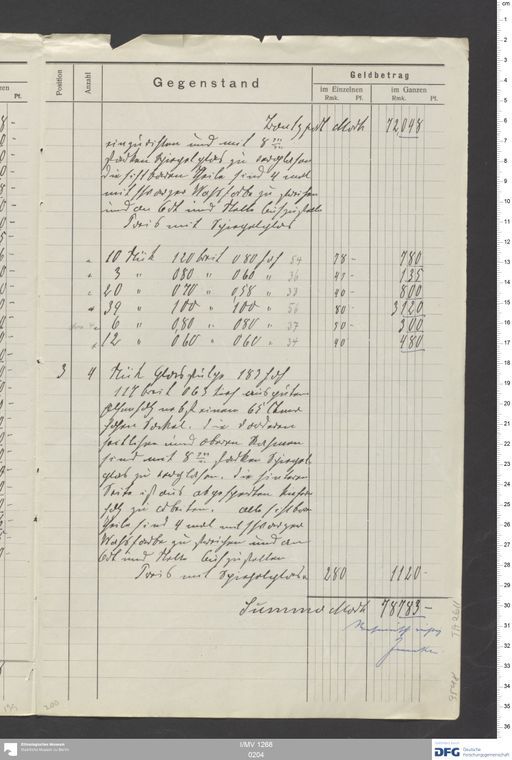 Position
Anzahl
Gegenstand
Geldbetrag
im Einzelnen
im Ganzen
Rmk. Pf.
Rmk. Pf.
Mark 72048
einzurichten und mit 8 mm
starken Spiegelglas zu verglasen
die sichtbaren Theile sind 4 mal
mit schwarzer Wachsfarbe zu streichen
und an Ort und Stelle aufzustellen
Preis mit Spiegelglas
10 Stück 120 breit 080 hoch 54 78 - 780
3 " 080 " 060 " 36 45 - 135
20 " 070 " 058 " 38 40 - 800
39 " 100 " 100 " 56 80 - 3120
6 " 080 " 080 " 37 50 - 300
12 " 060 " 060 " 34 40 480
3 4 Stück 183 hoch
117 breit 063 tief aus gutem
nebst einem 65
hohen Sockel. Die vorderen
seitlichen und oberen Rahmen
sind mit 8 mm starken Spiegel
glas zu verglasen. Die hintere
Seite ist aus
zu arbeiten. Alle sichtbaren
Theile sind 4 mal mit schwarzer
Wachsfarbe zu streichen und an
Ort und Stelle aufzustellen
Preis mit Spiegelglas 280 1120 -
Summa Mark 78783 -
200
Ethnologisches Museum
Staatliche Museen zu Berlin
I/MV 1268
0204
DFG Deutsche
Forschungsgemeinschaft